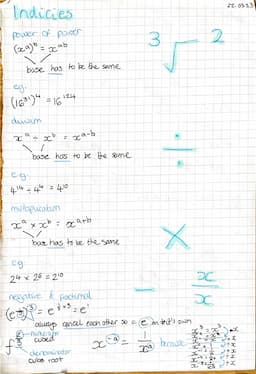 Indicies
22.03.23
power of power
(xᵃ)ᵇ = xᵃᵇ
3√ 2
base has to be the same
eg.
(16³¹)⁴ = 16¹²⁴
division
xᵃ ÷ xᵇ = xᵃ⁻ᵇ
÷
base has to be the same
e.g.
4¹⁴ ÷ 4⁴ = 4¹⁰
multiplication
xᵃ × xᵇ = xᵃ⁺ᵇ
×
base has to be the same
eg
2⁴ × 2⁶ = 2¹⁰
negative & fractional
always cancel each other so = e on it's own
cubed
denominator
cube root
x⁻ᵃ = 1/xᵃ because